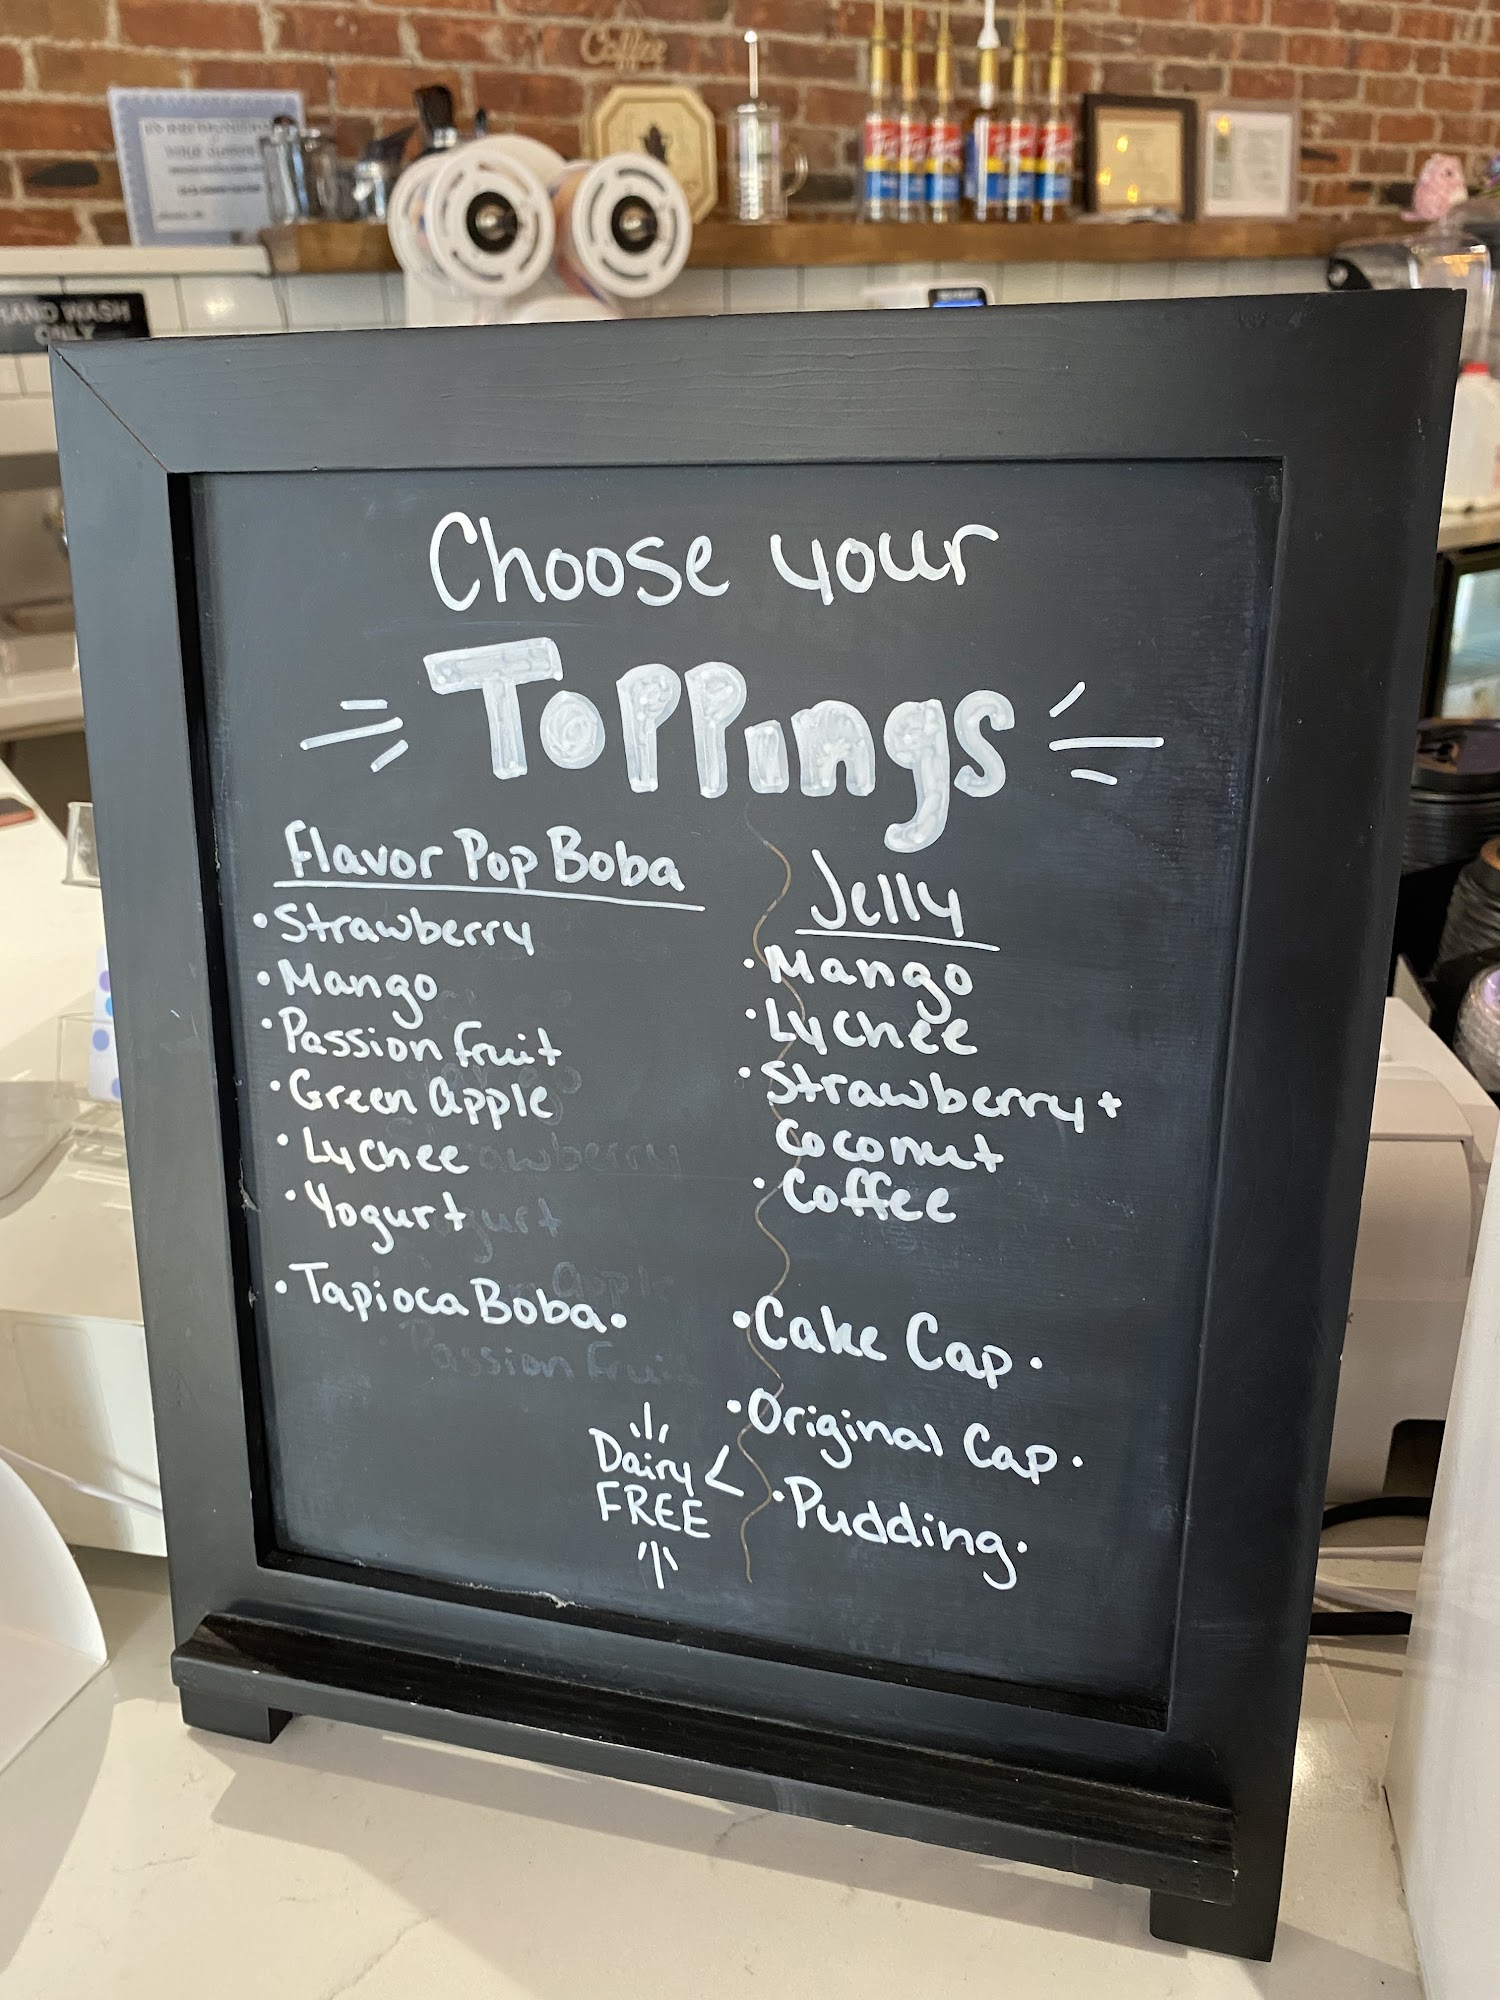 Coffee
HAND WASH
ONLY
Choose your
Toppings
Flavor Pop Boba
• Strawberry
• Mango
• Passion fruit
• Green Apple
• Lychee
• Yogurt
• Tapioca Boba •
Jelly
• Mango
• Lychee
• Strawberry +
Coconut
• Coffee
• Cake Cap •
• Original Cap •
• Pudding •
Dairy <
FREE